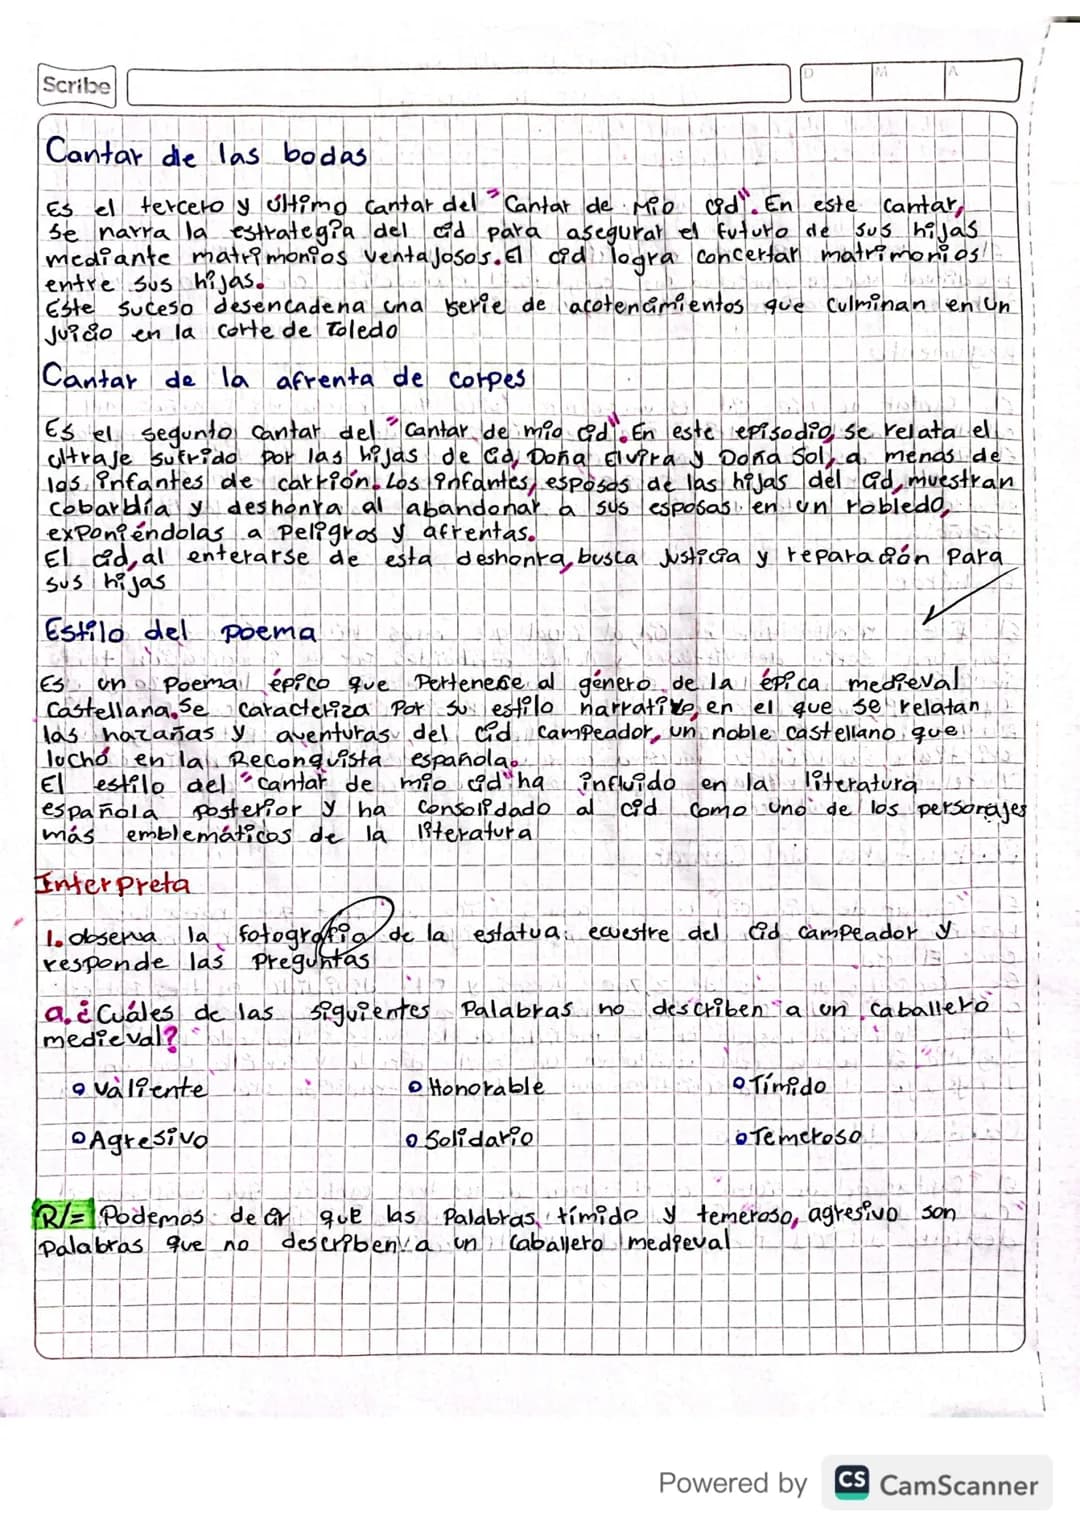 Scribe
D M A
Cantar de las bodas
Es el tercero y último cantar del "Cantar de Mio cid". En este cantar,
se narra la estrategia del cid para asegurar el futuro de sus hijas
mediante matrimonios ventajosos. El cid logra concertar matrimonios
entre sus hijas.
Este suceso desencadena una serie de acotencimientos que culminan en un
Juicio en la corte de Toledo
Cantar de la afrenta de corpes
Es el segunto cantar del "Cantar de mio cid". En este episodio, se relata el
ultraje sufrido por las hijas de Cid, Doña Elvira y Doña Sol, a menos de
los infantes de carrión. Los infantes, esposos de las hijas del Cid, muestran
cobardía y deshonra al abandonar a sus esposas en un robledo,
exponiéndolas a peligros y afrentas.
El cid, al enterarse de esta deshonra, busca Justicia y reparación Para
sus hijas
Estilo del poema
Es un poema épico que Pertenece al género de la épica medieval
Castellana. Se caracteriza Por su estilo narrativo, en el que se relatan
las hazañas y aventuras del Cid campeador, un noble castellano que
luchó en la Reconquista española.
El estilo del "cantar de mio cid" ha influido en la literatura
española posterior y ha consolidado al cid como uno de los personajes
más emblemáticos de la literatura
Interpreta
1. observa la fotografía de la estatua ecuestre del Cid campeador y
responde las Preguntas
a. ¿Cuáles de las siguientes Palabras no describen a un caballero
medieval?
Valiente Honorable Tímido
Agresivo Solidario Temeroso
R/= Podemos decir que las Palabras tímido y temeroso, agresivo son
Palabras que no describen a un caballero medieval
Powered by CS CamScanner